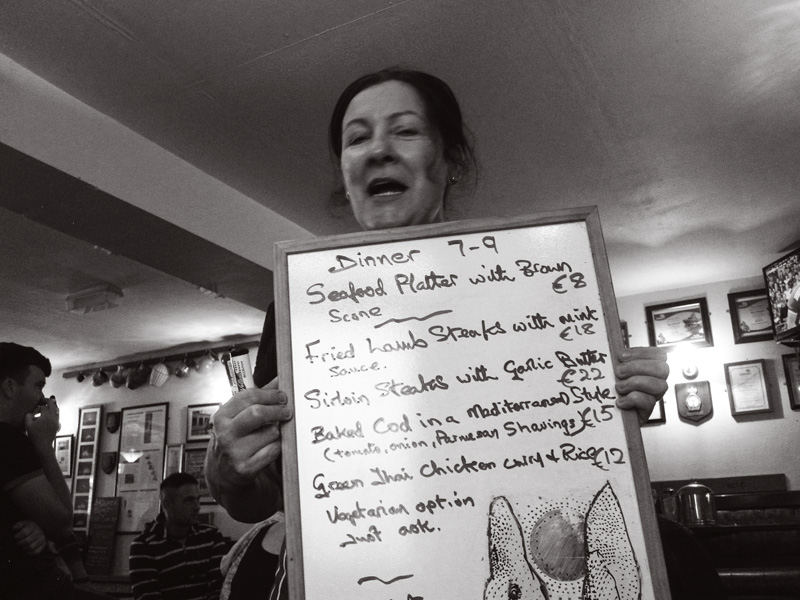 Dinner 7-9
Seafood Platter with Brown
€8
Scone
Fried Lamb Steaks with mint
€18
Sauce.
Sirloin Steaks with Garlic Butter
€22
Baked Cod in a Mediterranean Style
(tomato, onion, Parmesan Shavings) €15
Green Thai Chicken curry & Rice €12
Vegetarian option
Just ask.